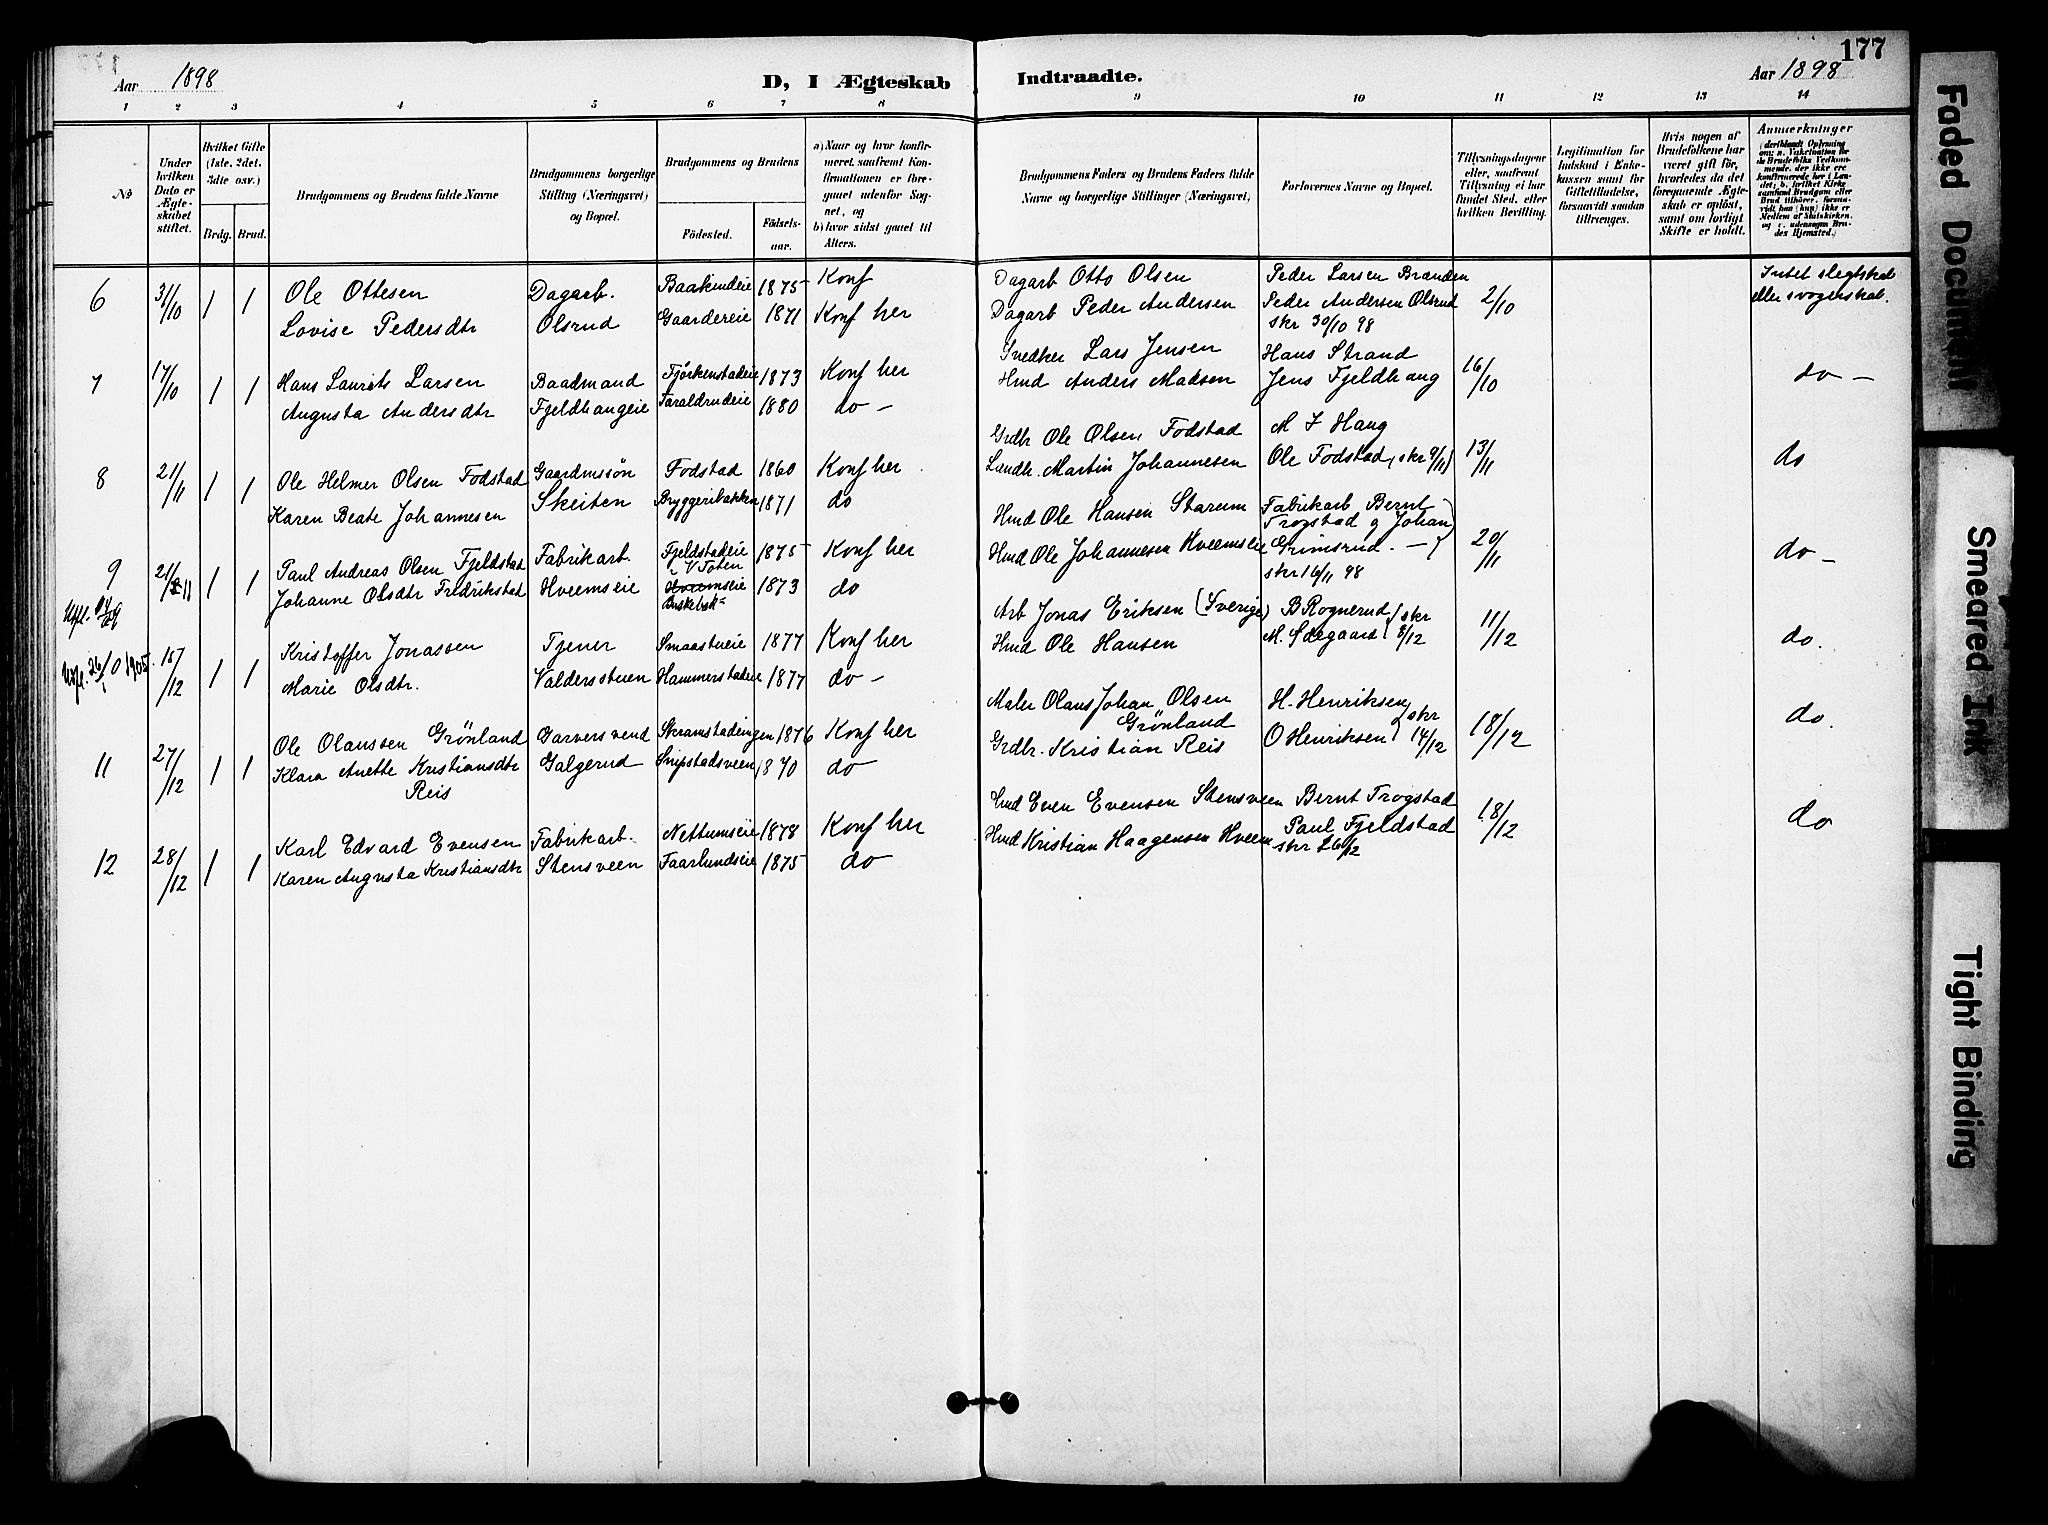 177
Aar 1898
D, I Ægteskab Indtraadte.
Aar 1898
1 2 3 4 5 6 7 8 9 10 11 12 13 14
No
Under hvilken Dato er Ægteskabet stiftet.
Hvilket Gifte (1ste, 2det, 3dte osv.)
Brdg. Brud.
Brudgommens og Brudens fulde Navne
Brudgommens borgerlige Stilling (Næringsvei) og Bopæl.
Brudgommens og Brudens
Födested.
Födsels-aar.
a) Naar og hvor konfirmeret, saafremt Konfirmationen er foregaaet udenfor Sognet, og
b) hvor sidst gaaet til Alters.
Brudgommens Faders og Brudens Faders fulde Navne og borgerlige Stillinger (Næringsvei)
Forlovernes Navne og Bopæl.
Tillysningsdagene eller, saafremt Tillysning ei har fundet Sted, efter hvilken Bevilling.
Legitimation for Indskud i Enkekassen samt for Giftetilladelse, forsaavidt saadan tiltrænges.
Hvis nogen af Brudefolkene har været gift för, hvorledes da det foregaaende Ægteskab er oplöst, samt om lovligt Skifte er holdt.
Anmærkninger
(deriblandt Oplysning om: a. Vakcination for de Brudefolks Vedkommende, der ikke ere konfirmerede her i Landet; b. hvilket Kirkesamfund Brudgom eller Brud tilhører, forsaavidt han (hun) ikke er Medlem af Statskirken, og c. udensogns Brudes Hjemsted.)
6 31/10 1 1 Ole Ottesen Dagarb. Baakindeie 1875 Konf Dagarb Otto Olsen Peder Larsen Branden 2/10 Intet slegtskab
Lovise Pedersdtr Olsrud Gaardereie 1871 Konf her Dagarb Peder Andersen Peder Andersen Olsrud eller svogerskab.
skr 30/10 98
7 17/10 1 1 Hans Laurits Larsen Baadmand Fjörkenstadeie 1873 Konf her Snedker Lars Jensen Hans Strand 16/10 do —
Augusta Andersdtr Fjeldhaugeie Taraldrudeie 1880 do — Hmd Anders Madsen Jens Fjeldhaug
8 21/11 1 1 Ole Helmer Olsen Fodstad Gaardmssön Fodstad 1860 Konf her Grdbr Ole Olsen Fodstad M J Haug 13/11 do
Karen Beate Johannesen Skeiten Bryggeribakken 1871 do Landh. Martin Johannesen Ole Fodstad (skr 9/11)
9 21/11 1 1 Paul Andreas Olsen Fjeldstad Fabrikarb. Fjeldstadeie V Toten 1875 Konf her Hmd Ole Hansen Starum Fabrikarb Bernt 20/11 do —
Trogstad og Johan
Johanne Olsdtr Fredrikstad Hveemseie Hveemseie 1873 do Hmd Ole Johannesen Hveemseie Grimsrud. —
skr 16/11 98
Kristoffer Jonassen Tjener Smaastueie 1877 Konf her Arb Jonas Eriksen (Sverige) B Rognerud skr 11/12 do.
1 1 Marie Olsdtr. Valdersstuen Hammerstadeie 1877 do — Hmd Ole Hansen M. Ødegaard 8/12
11 27/12 1 1 Ole Olaussen Grönland Garversvend Skramstadeingen 1876 Konf her Maler Olaus Johan Olsen Grönland H. Henriksen skr 18/12 do.
Klara Anette Kristiansdtr Reis Galgerud Snipstadsveen 1870 do Grdbr. Kristian Reis O Henriksen 14/12
12 28/12 1 1 Karl Edvard Evensen Fabrikarb. Nettumseie 1878 Konf her Hmd Even Evensen Stensveen Bernt Trogstad 18/12 do
Karen Augusta Kristiansdtr Stensveen Faarlundseie 1875 do Hmd Kristian Haagensen Hveem Paul Fjeldstad
skr 16/12
Faded Document
Smeared Ink
Tight Binding